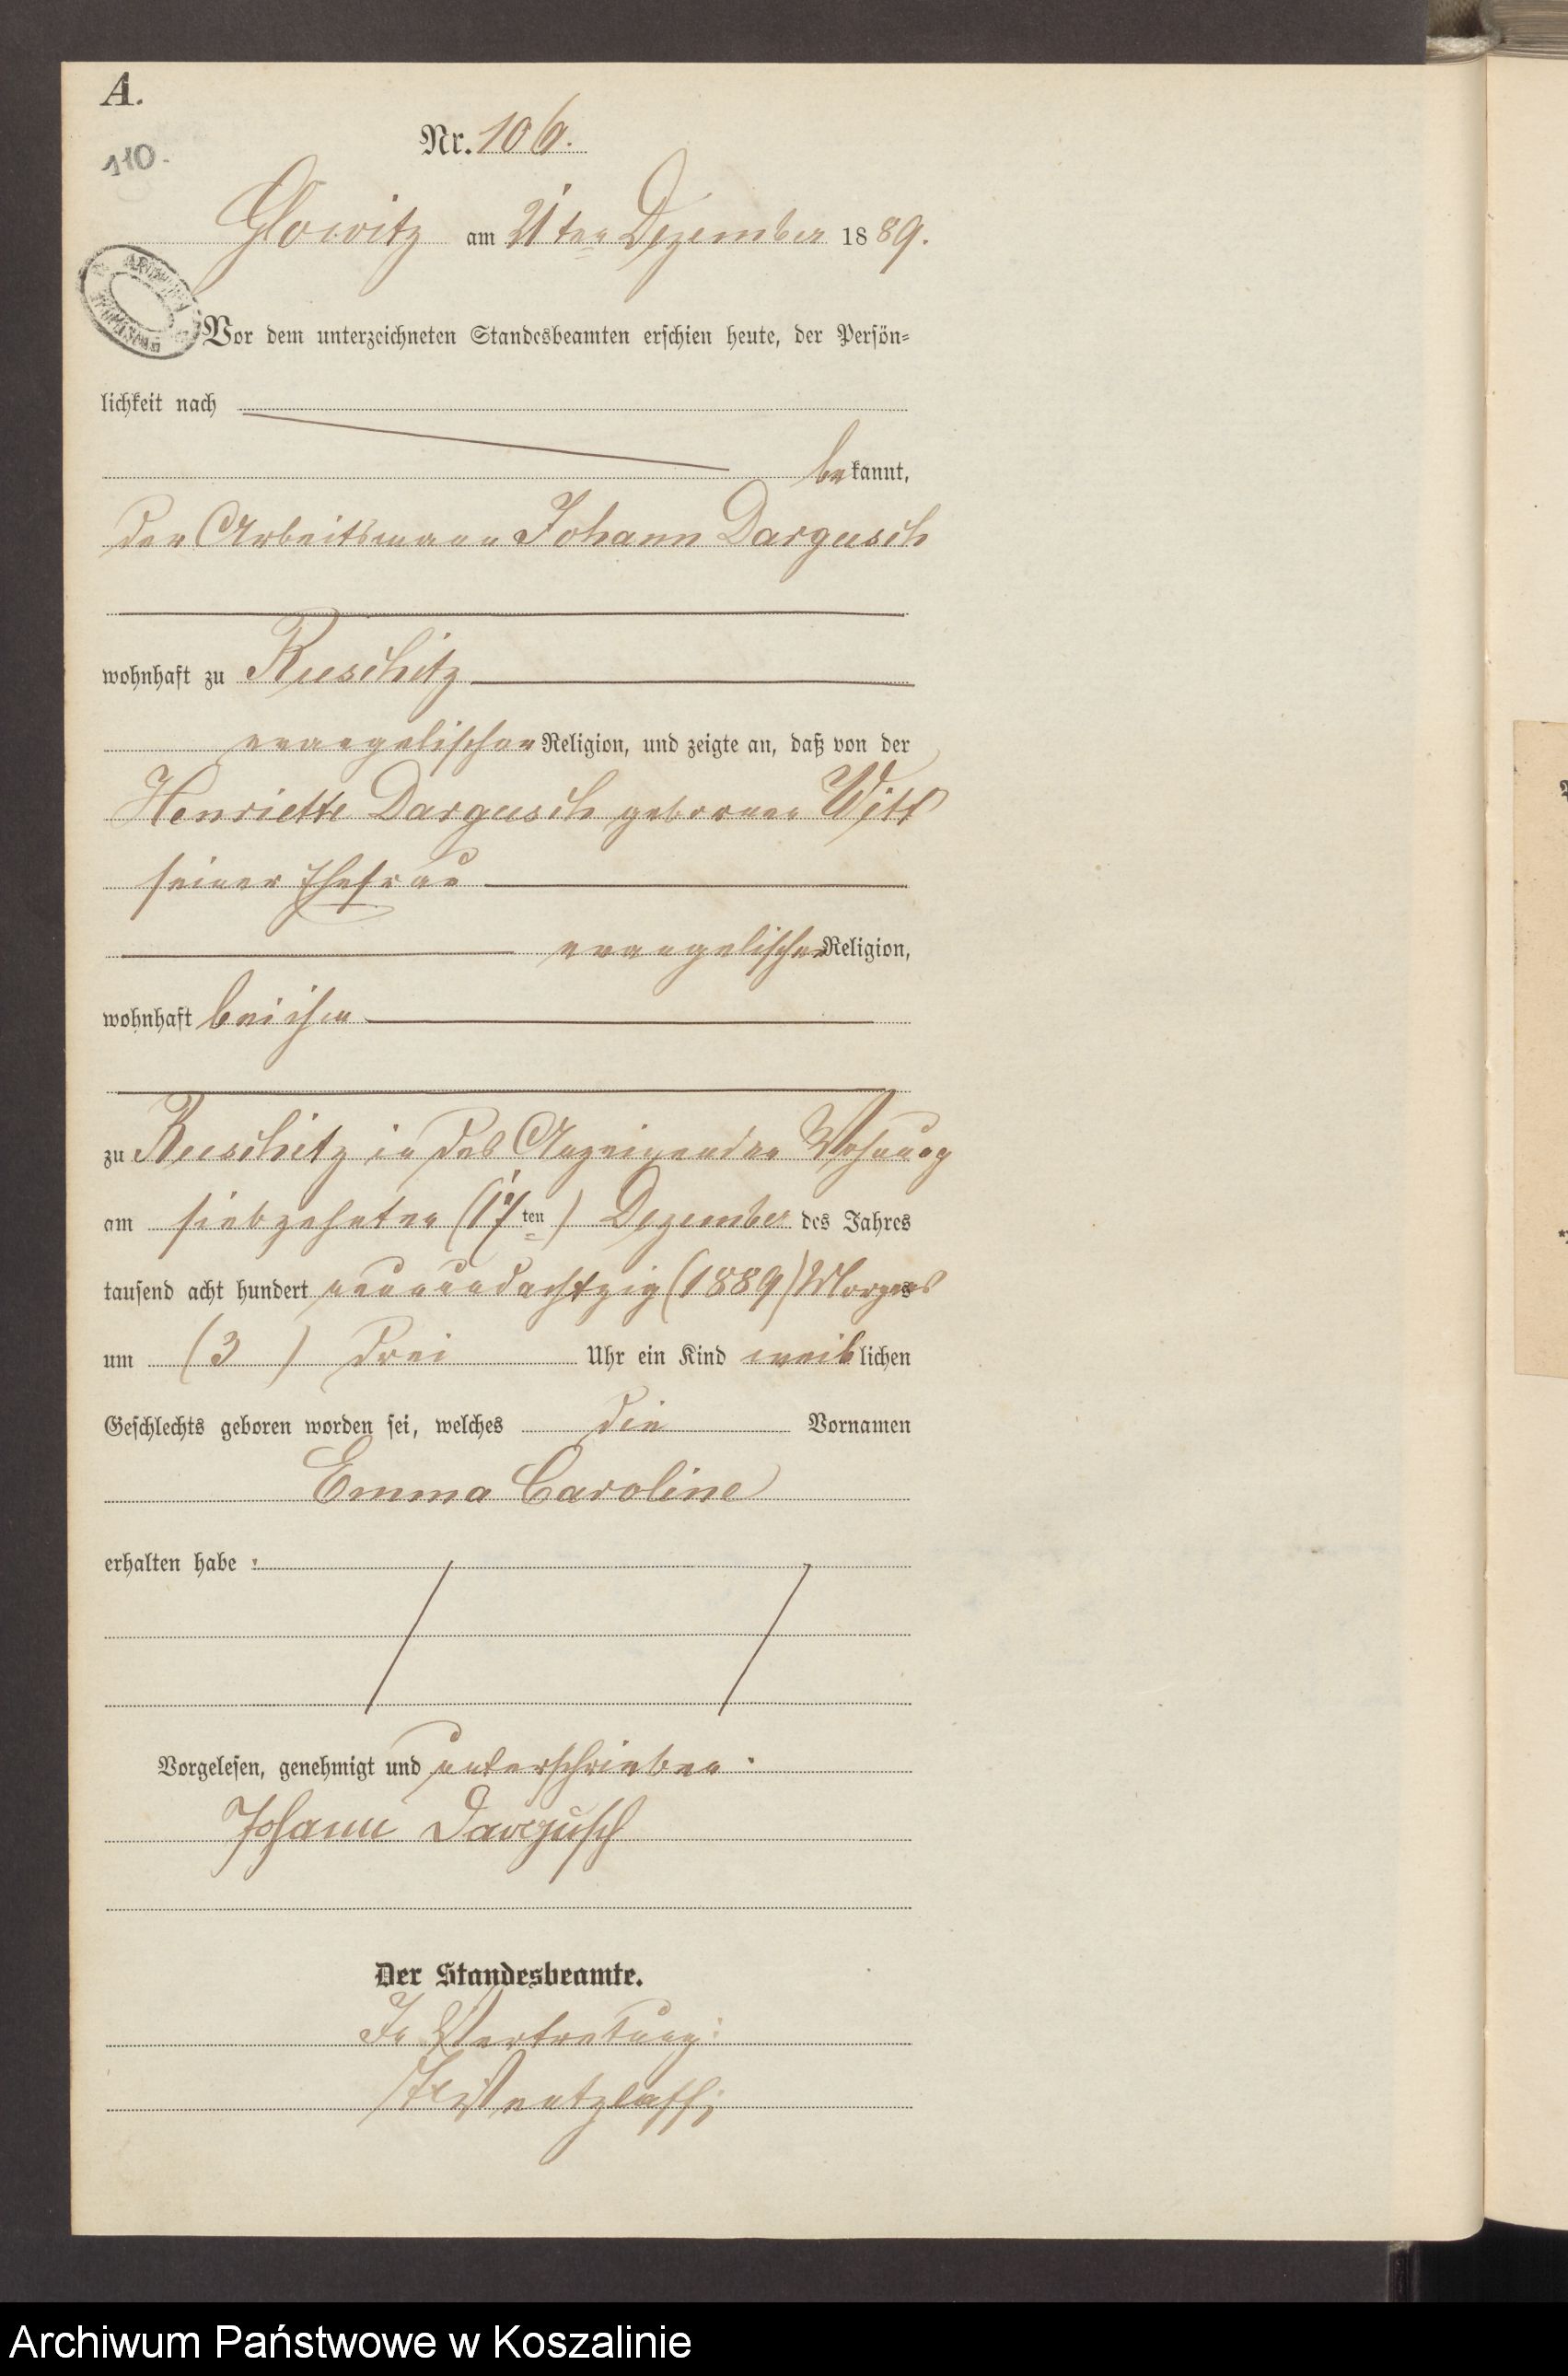 A.
Nr. 106.
110.
Glowitz am 21ten Dezember 1889.
Vor dem unterzeichneten Standesbeamten erschien heute, der Persön-
lichkeit nach
bekannt,
der Arbeitsmann Johann Dargusch
wohnhaft zu Ruschitz
evangelischer Religion, und zeigte an, daß von der
Henriette Dargusch geborenen Witt
seiner Ehefrau
evangelischer Religion,
wohnhaft bei ihm
zu Ruschitz in des Anzeigenden Wohnung
am siebzehnten (17ten) Dezember des Jahres
tausend acht hundert neunundachtzig (1889) Morgens
um (3) drei Uhr ein Kind weiblichen
Geschlechts geboren worden sei, welches die Vornamen
Emma Caroline
erhalten habe.
Vorgelesen, genehmigt und unterschrieben.
Johann Dargusch
Der Standesbeamte.
In Vertretung:
Wentzlaff
Archiwum Państwowe w Koszalinie